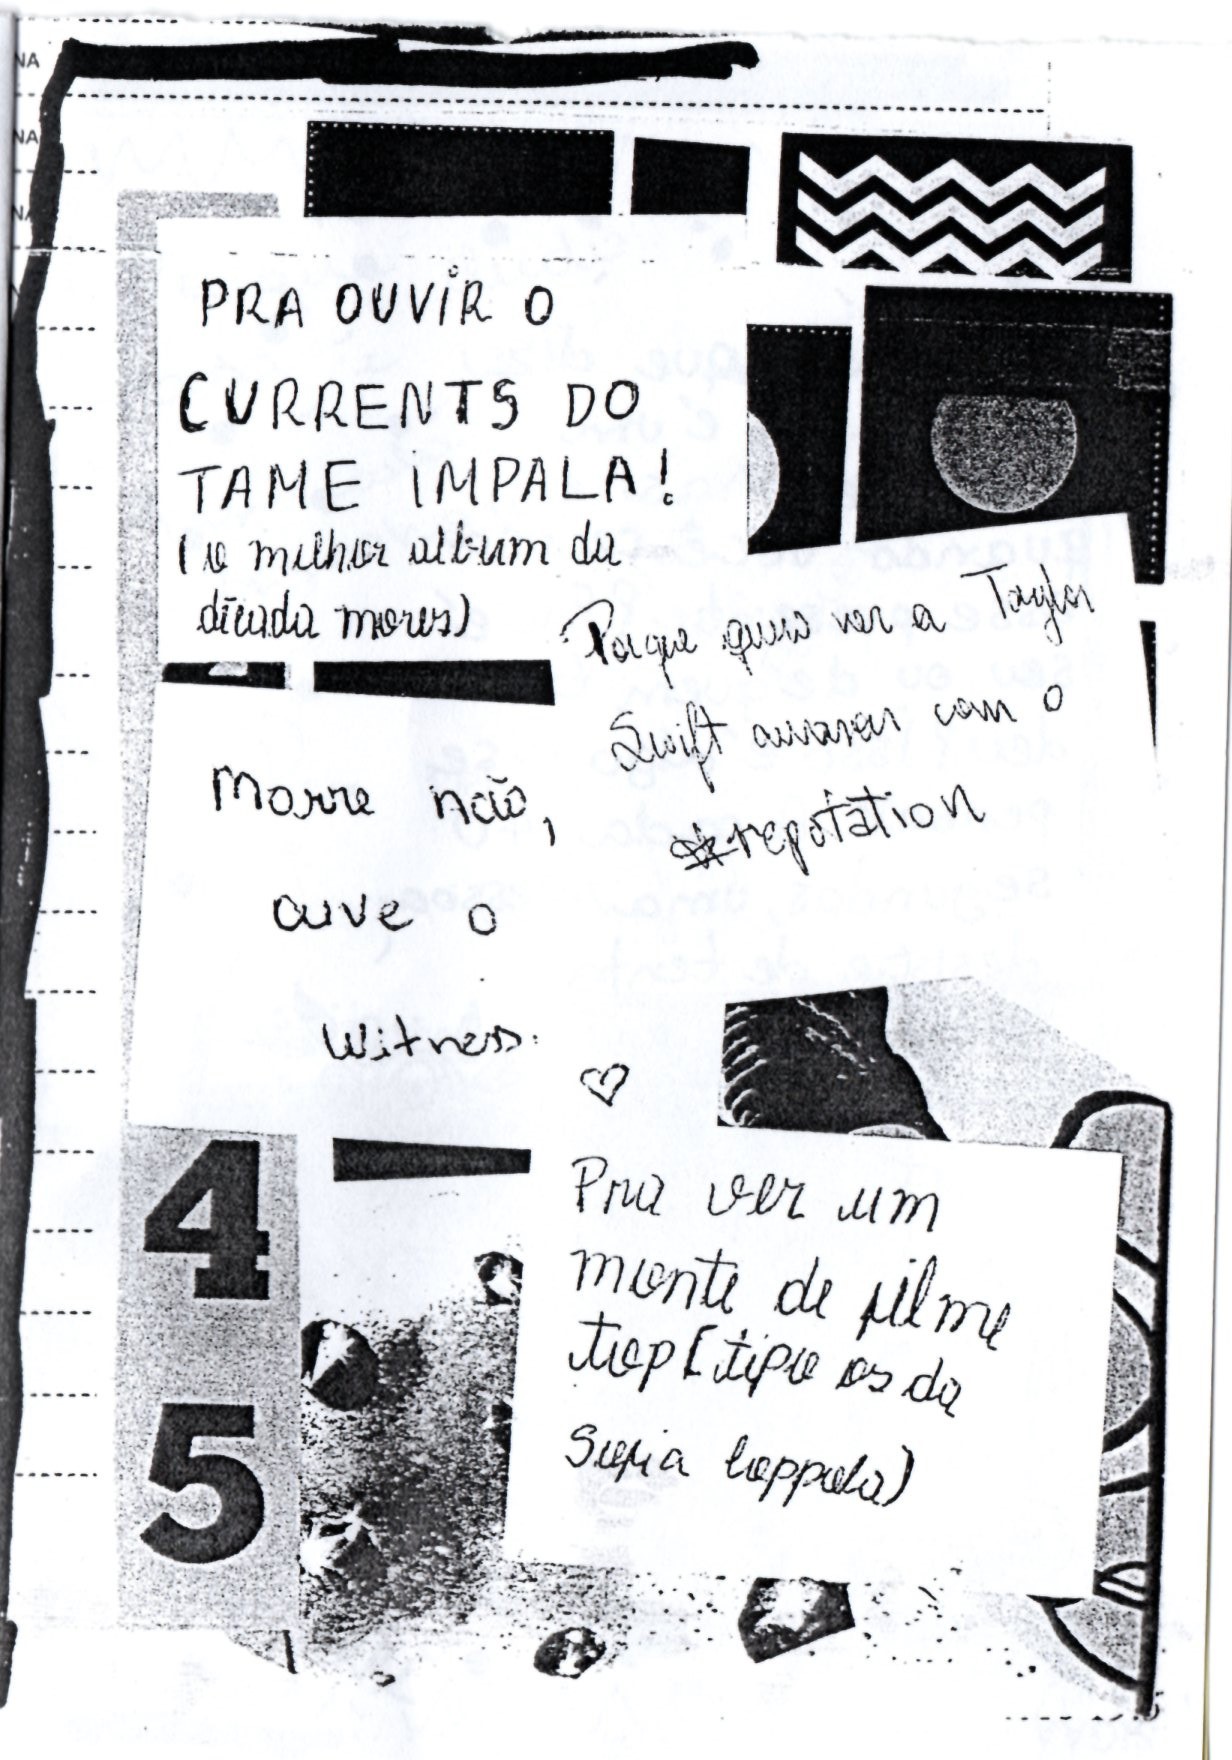 NA
NA
NA
PRA OUVIR O
CURRENTS DO
TAME IMPALA!
(o melhor album da
década mores)
Porque quero ver a Taylor
Swift arrasar com o
#reputation
Morre não,
ouve o
Witness.
♡
4
5
Pra ver um
monte de filme
top (tipo os da
Sofia Coppola)